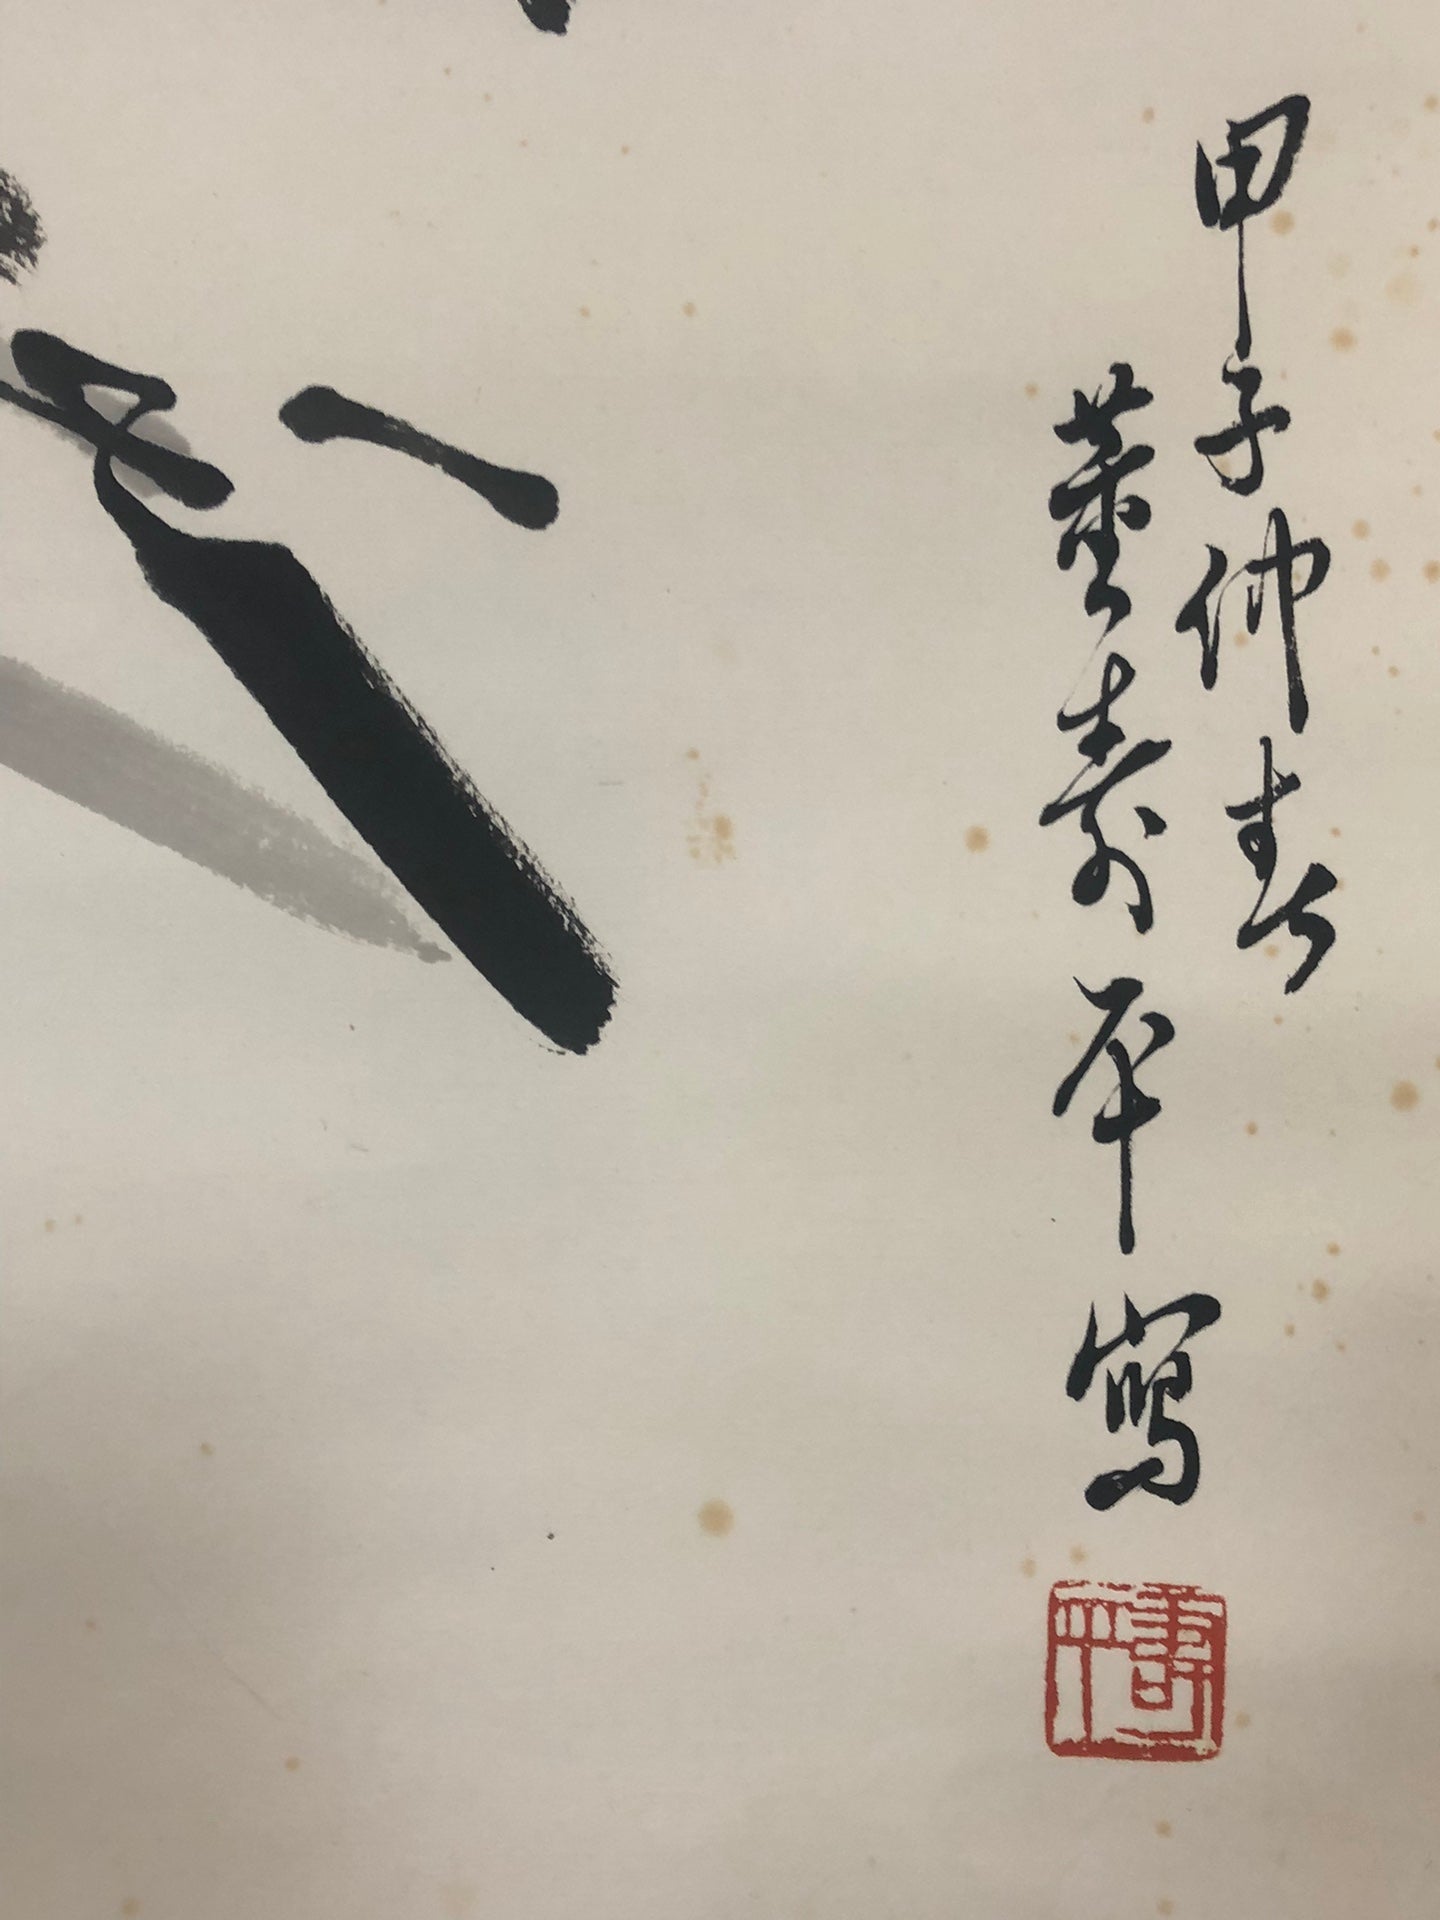 甲子仲春
董壽平寫
壽平